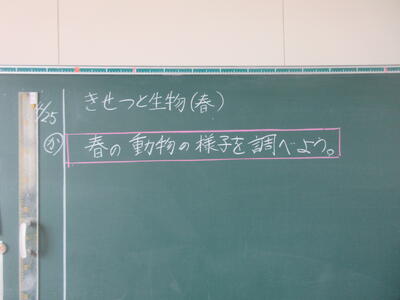 きせつと生物(春)
4/25
か 春の動物の様子を調べよう。